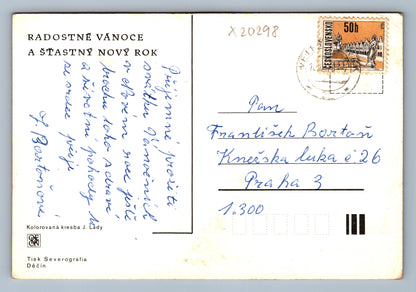 RADOSTNÉ VÁNOCE
A ŠŤASTNÝ NOVÝ ROK
Příjemné prožití
svátků Vánočních
v novém roce ještě
trochu toho zdraví
a životní pohody
ze srdce přeje
J. Bartoňová
Kolorovaná kresba J. Lady
Tisk Severografia
Děčín
X20298
50h
ČESKOSLOVENSKO
Pan
František Bartoň
Kněžska luka č 26
Praha 3
1.300